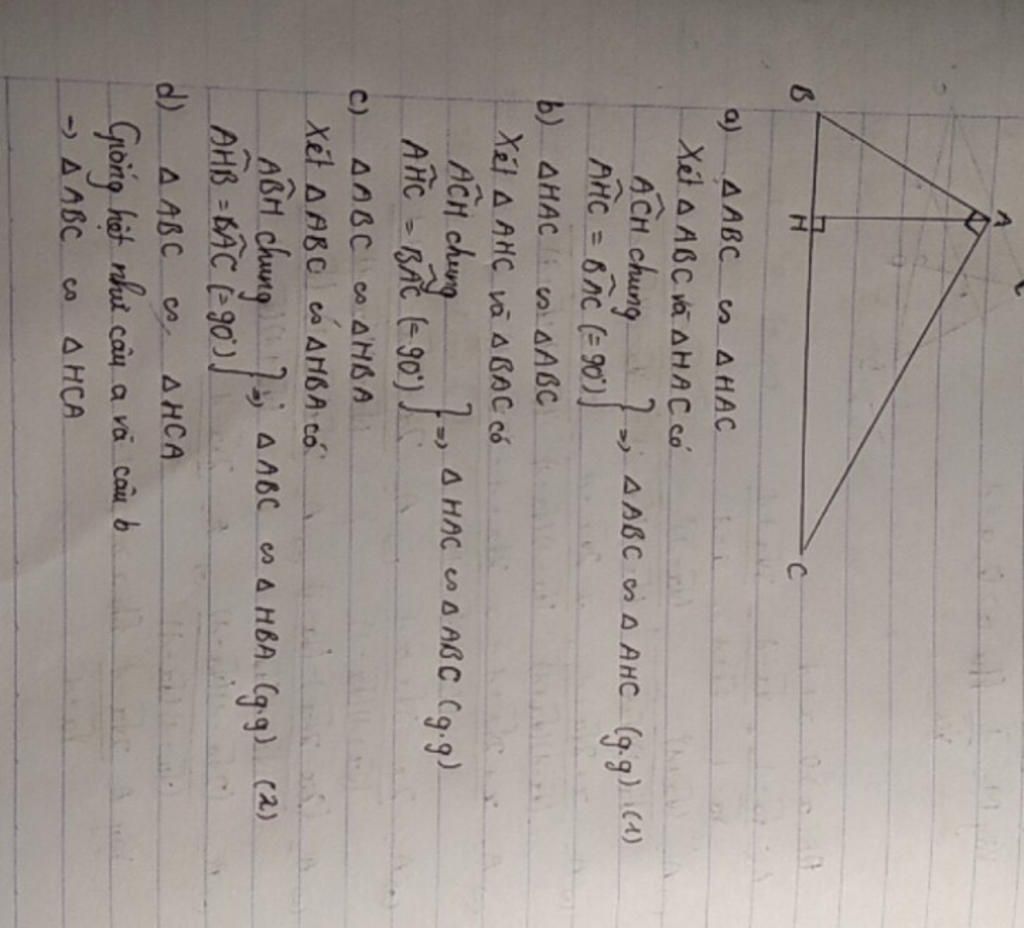 A
B
H
C
a) Δ ABC ∽ Δ HAC
Xét Δ ABC và Δ HAC có
AĈH chung
AĤC = BÂC (= 90°) } => Δ ABC ∽ Δ AHC (g.g) (1)
b) Δ HAC ∽ Δ ABC
Xét Δ AHC và Δ BAC có
AĈH chung
AĤC = BÂC (= 90°) } => Δ HAC ∽ Δ ABC (g.g)
c) Δ ABC ∽ Δ HBA
Xét Δ ABC ∽ Δ HBA có
AB̂H chung
AĤB = BÂC (= 90°) } => Δ ABC ∽ Δ HBA (g.g) (2)
d) Δ ABC ∽ Δ HCA
Giống hệt như câu a và câu b
-> Δ ABC ∽ Δ HCA